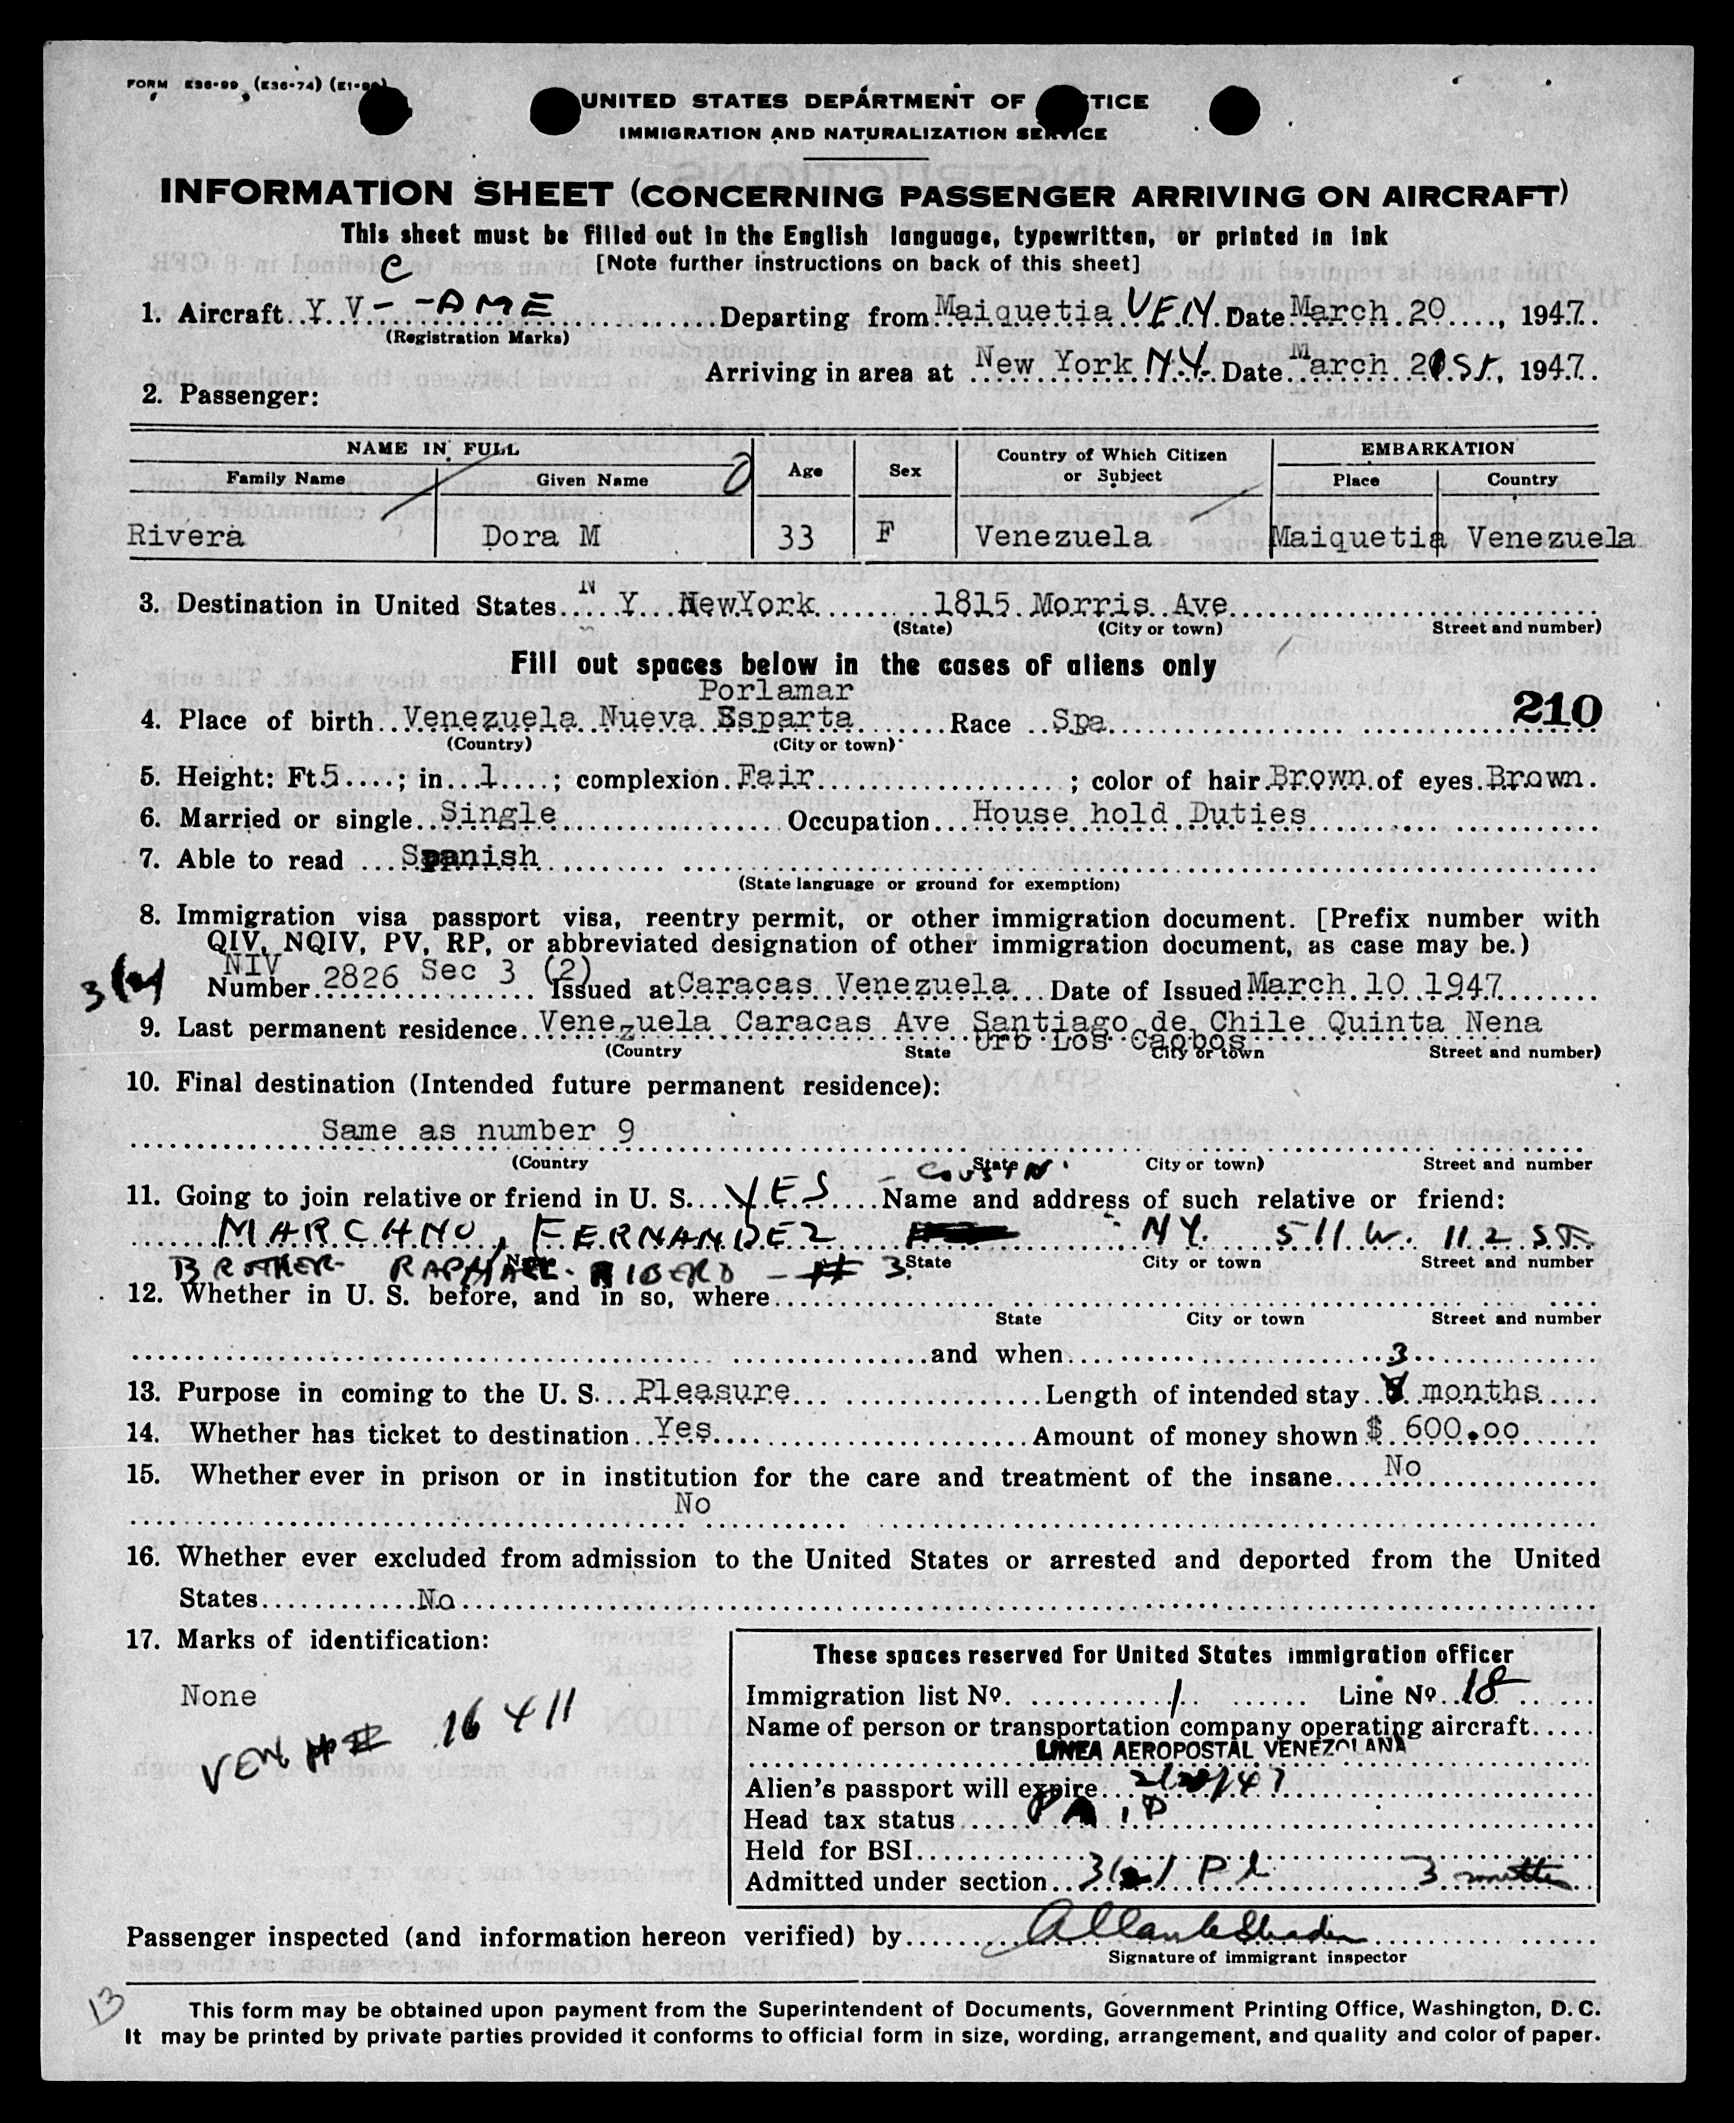 FORM
UNITED STATES DEPARTMENT OF TICE
IMMIGRATION AND NATURALIZATION SERVICE
INFORMATION SHEET (CONCERNING PASSENGER ARRIVING ON AIRCRAFT)
This sheet must be filled out in the English language, typewritten, or printed in ink
[Note further instructions on back of this sheet]
C
1. Aircraft Y V - -AME Departing from Maiquetia VEN. Date March 20, 1947.
(Registration Marks)
Arriving in area at New York N.Y. Date March 21st, 1947.
2. Passenger:
NAME IN FULL Age Sex Country of Which Citizen or Subject EMBARKATION
Family Name Given Name Place Country
Rivera Dora M 33 F Venezuela Maiquetia Venezuela
3. Destination in United States N Y NewYork 1815 Morris Ave
(State) (City or town) Street and number)
Fill out spaces below in the cases of aliens only
Porlamar
4. Place of birth Venezuela Nueva Esparta Race Spa 210
(Country) (City or town)
5. Height: Ft 5; in 1; complexion Fair; color of hair Brown of eyes Brown.
6. Married or single Single Occupation House hold Duties
7. Able to read Spanish
(State language or ground for exemption)
8. Immigration visa passport visa, reentry permit, or other immigration document. [Prefix number with
QIV, NQIV, PV, RP, or abbreviated designation of other immigration document, as case may be.)
NIV
3(2) Number 2826 Sec 3 (2) Issued at Caracas Venezuela Date of Issued March 10 1947
9. Last permanent residence Venezuela Caracas Ave Santiago de Chile Quinta Nena
Urb Los Caobos
(Country State City or town Street and number)
10. Final destination (Intended future permanent residence):
Same as number 9
(Country State City or town) Street and number
- COUSIN
11. Going to join relative or friend in U. S. YES Name and address of such relative or friend:
MARCHNO, FERNANDEZ NY. 511 W. 112 ST.
Name State City or town Street and number
BROTHER- RAPHAEL RIBERO - # 3.
12. Whether in U. S. before, and in so, where
State City or town Street and number
and when
3
13. Purpose in coming to the U. S. Pleasure Length of intended stay months
14. Whether has ticket to destination Yes Amount of money shown $ 600.00
15. Whether ever in prison or in institution for the care and treatment of the insane No
No
16. Whether ever excluded from admission to the United States or arrested and deported from the United
States No
17. Marks of identification:
None
VEN # 16411
These spaces reserved for United States immigration officer
Immigration list No. 1 Line No. 18
Name of person or transportation company operating aircraft
LINEA AEROPOSTAL VENEZOLANA
Alien's passport will expire
Head tax status PAID
Held for BSI
Admitted under section 3(2) 3 months
Passenger inspected (and information hereon verified) by
Signature of immigrant inspector
13
This form may be obtained upon payment from the Superintendent of Documents, Government Printing Office, Washington, D. C.
It may be printed by private parties provided it conforms to official form in size, wording, arrangement, and quality and color of paper.